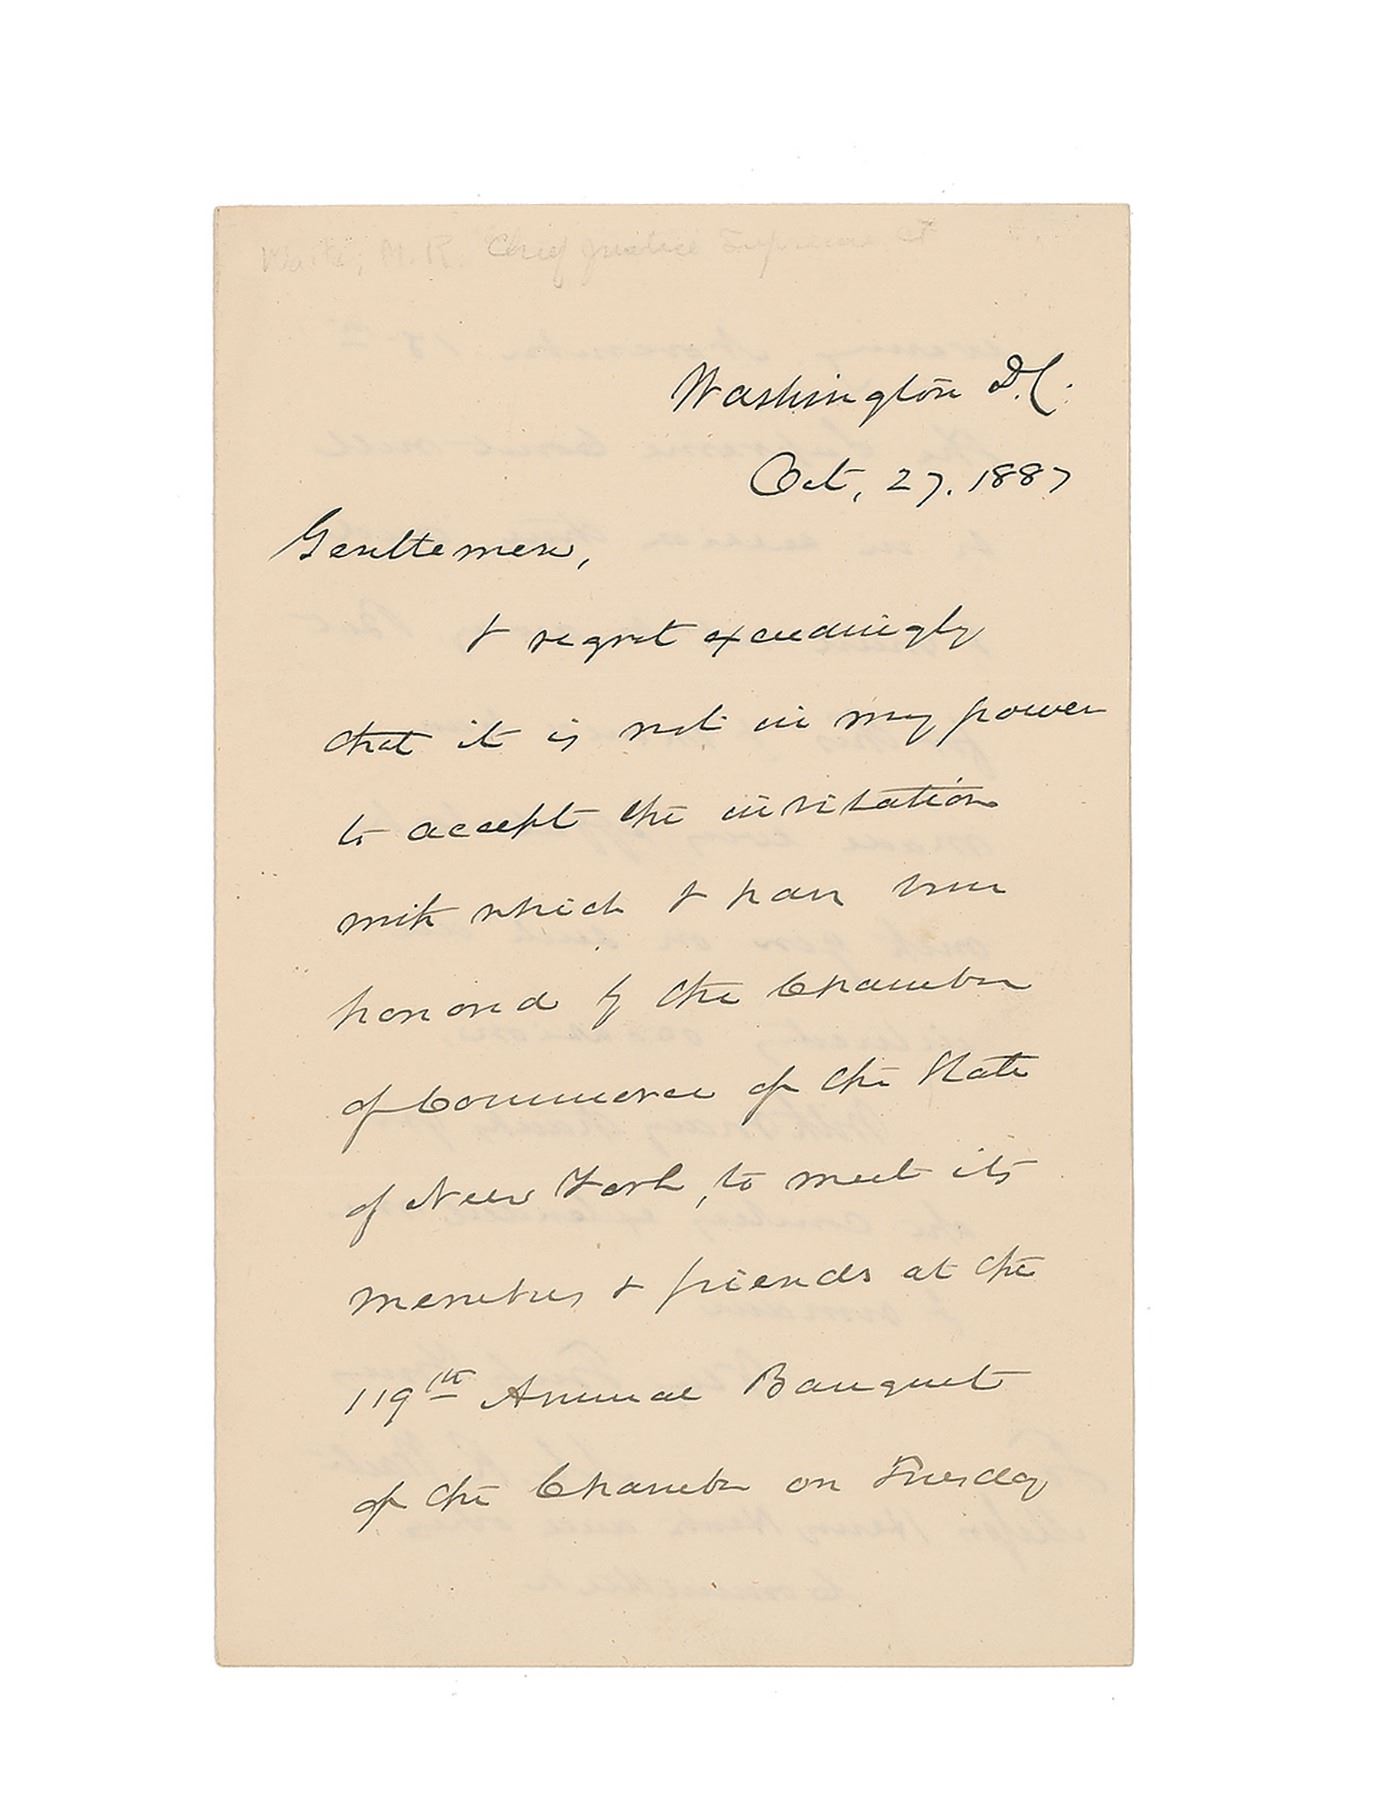 Waite, M. R. Chief Justice Supreme Ct
Washington D.C.
Oct, 27, 1887
Gentlemen,
I regret exceedingly
that it is not in my power
to accept the invitation
with which I have been
honored by the Chamber
of Commerce of the State
of New York, to meet its
members & friends at the
119th Annual Banquet
of the Chamber on Tuesday